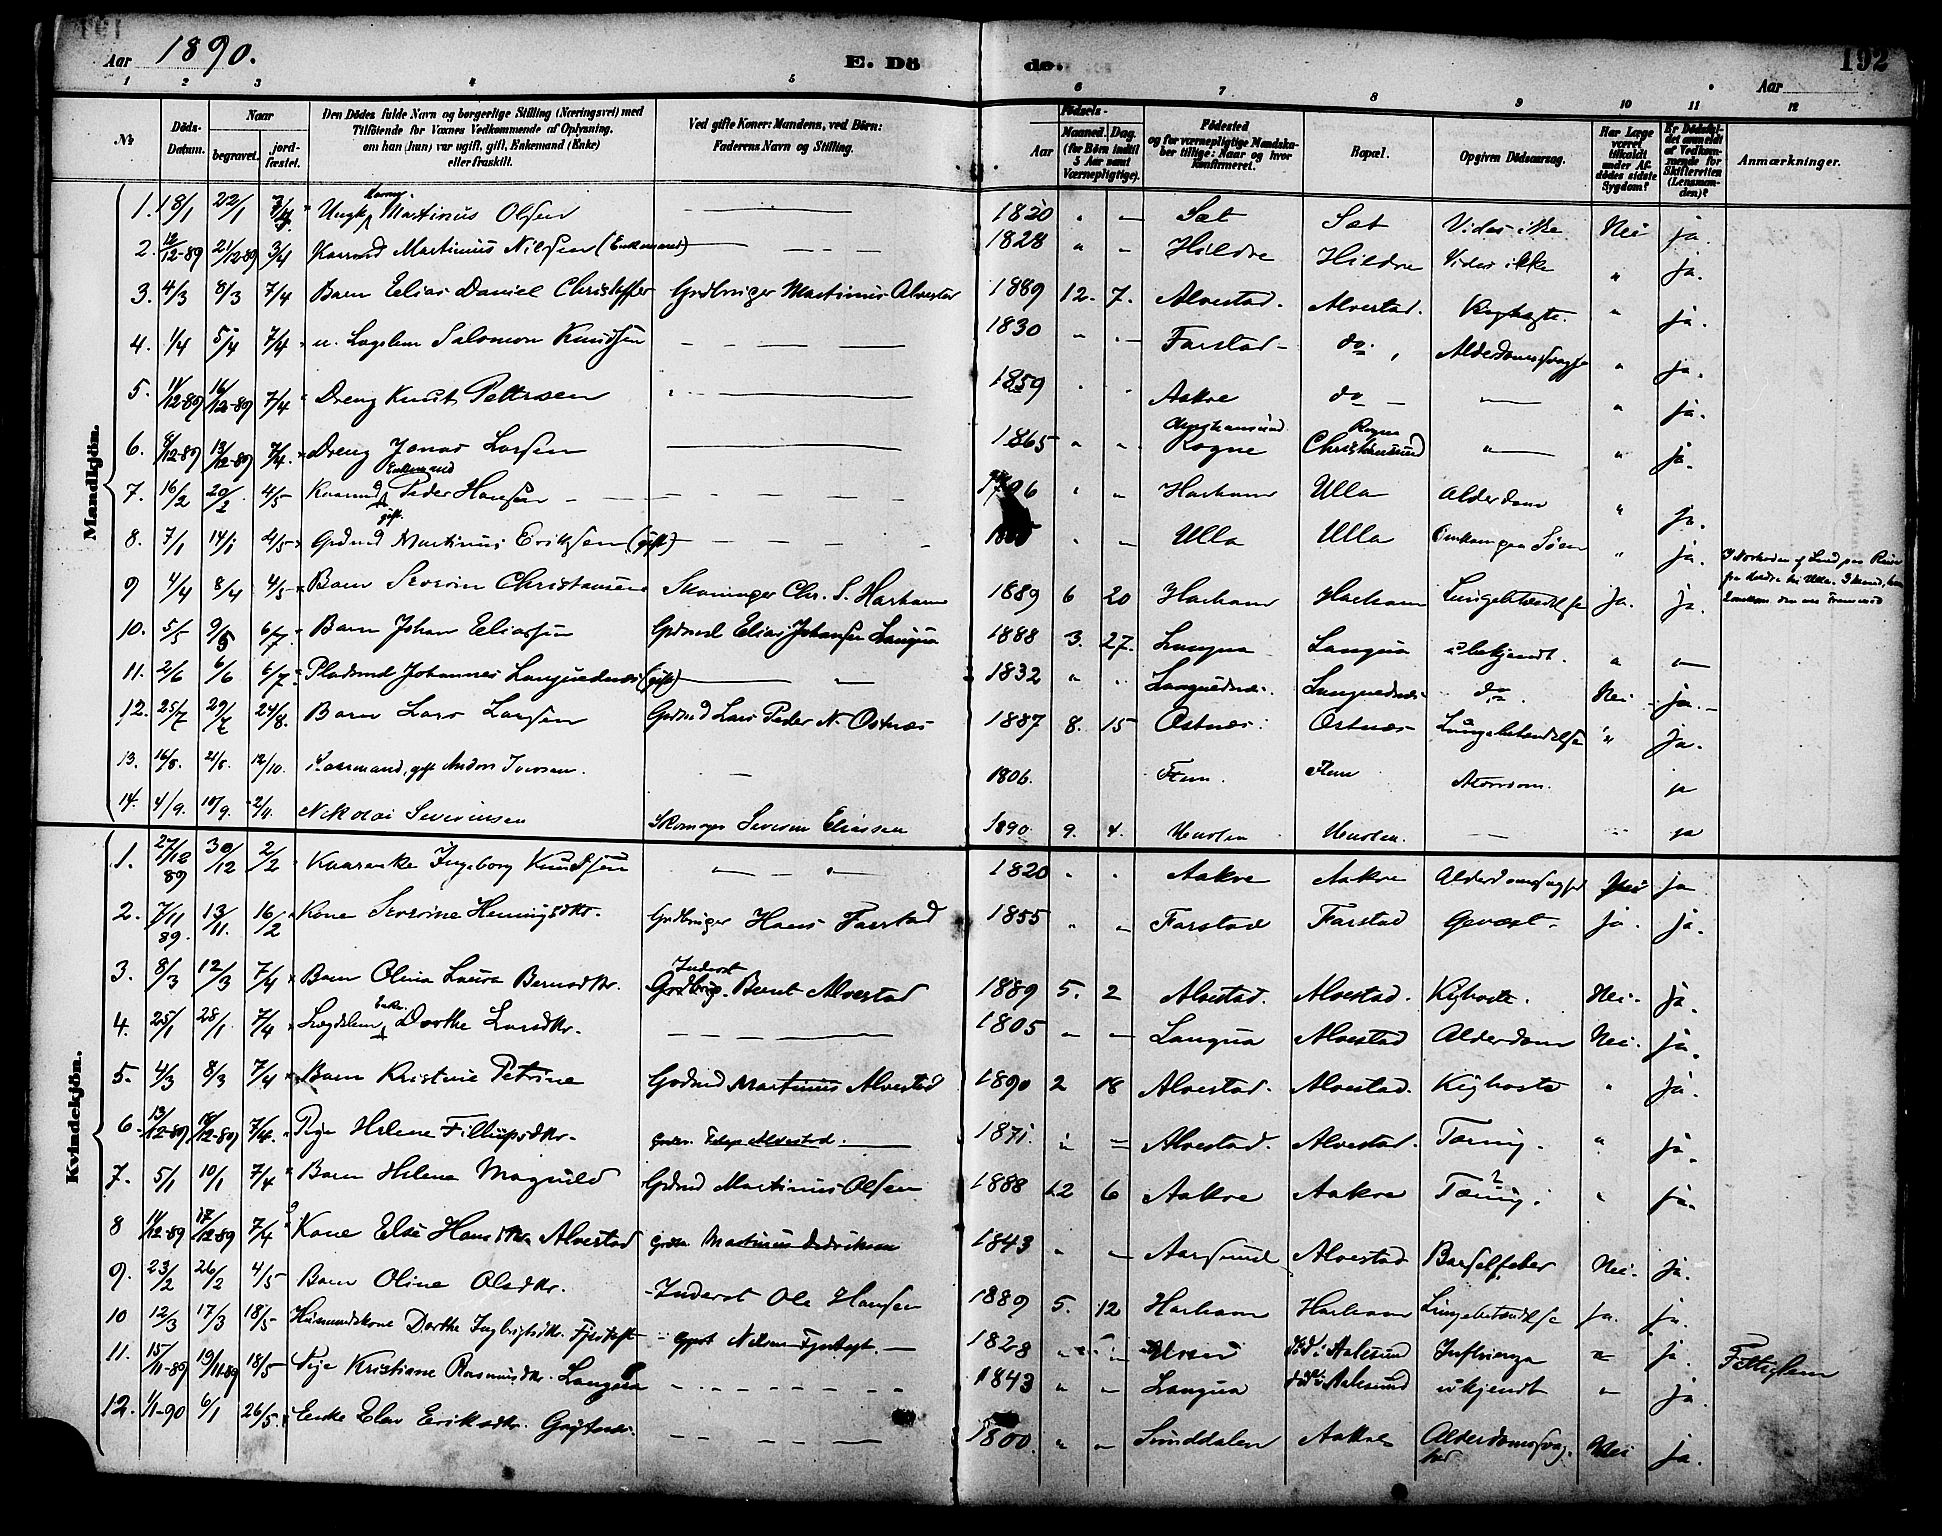 Aar 1890. E. Dö de. Aar 192
1 2 3 4 5 6 7 8 9 10 11 12
№ Döds-Datum. Naar begravet. jord-fæstet. Den Dödes fulde Navn og borgerlige Stilling (Næringsvei) med Tilföiende for Voxnes Vedkommende af Oplysning. om han (hun) var ugift, gift, Enkemand (Enke) eller fraskilt. Ved gifte Koner: Mandens, ved Börn: Faderens Navn og Stilling. Födsels- Aar Maaned. Dag. (for Börn indtil 5 Aar samt Værnepligtige). Födested og for værnepligtige Mandskaber tillige: Naar og hvor Konfirmeret. Bopæl. Opgiven Dödsaarsag. Har Læge været tilkaldt under Afdödes sidste Sygdom? Er Dödsfaldet anmeldt af Vedkommende for Skifteretten (Lensmanden)? Anmærkninger.
Mandkjön.
1. 18/1 22/1 7/4 Ungk. Martinus Olsen 1820 " — Sæt Sæt Vides ikke Nei ja.
2. 12/12-89 21/12-89 3/4 Martinus Nilsen (Enkemand) 1828 " — Hildre Hildre Vides ikke " ja.
3. 4/3 8/3 7/4 Barn Elias Daniel Christoffer Grdbruger Martinus Alvestad 1889 12. 7. Alvestad. Alvestad. " ja.
4. 1/4 5/4 7/4 u. Lægslem Salomon Knudsen 1830 " — Farstad do. " ja.
5. 11/12-89 16/12-89 7/4 Dreng Knut Pettersen 1859 Aakre do — " ja.
6. 8/12-89 13/12-89 7/4. Dreng Jonas Larsen 1865 " " Rogne Rogne Christiansund " " ja.
7. 16/2 20/2 4/5 Kaarmd Enkemand Peder Hansen " " Harham Ulla Alderdom " ja.
8. 7/1 14/1 4/5 Grdmd Martinus Eriksen (gift) " — Ulla Ulla Omkom paa Söen " ja.
9 4/4 8/4 4/5 Barn Severin Christiansen Skomager Chr. S. Harham 1889 6 20 Harham Harham Lungebetændelse ja. ja.
10. 5/5 9/5 6/7. Barn Johan Eliassen Grdmd Elias Johansen Langva 1888 3. 27. Langva Langva ubekjendt. " "
11. 2/6 6/6 6/7. Pladsmd Johannes Languednæs (gift) 1832 " " Languednæs. Languednæs do. Nei ja.
12. 25/7 29/7 24/8. Barn Lars Larsen Grdmd Lars Peder N. Ostnæs 1887 8. 15 Ostnæs Ostnæs Lungebetændelse " ja.
13. 16/8. 21/8. 12/10. Kaarmand, gift Anders Iversen. — 1806. Flem. Flem Alderdom. ja
14. 4/9. 10/9. 2/11. Nikolai Severinsen Skomager Severin Eliassen 1890 9. 4. — " ja
Kvindekjön.
1. 27/12 89 30/12 2/2 Kaarenke Ingeborg Knudsen 1820 " " Aakre Aakre Alderdomssvaghed Nei ja
2. 7/11 89. 13/11. 16/2 Kone Severine Henningsdtr. Grdbruger Hans Farstad 1855 " " Farstad Farstad ja. ja.
3. 8/3 12/3 7/4 Barn Olina Laura Berntsdtr. Inderst Bernt Alvestad 1889 5. 2 Alvestad. Alvestad. Kighoste. Nei. ja.
4. 25/1 28/1. 7/4 Lægdslem Enke Dorthe Larsdtr. 1805 " — Langva Alvestad Alderdom Nei. ja.
5. 4/3 8/3 7/4 Barn Kristine Petrine Grdmd Martinus Alvestad 1890 2 18 Alvestad. Alvestad. Kighoste " ja
6. 13/12-89 18/12-89 7/4. Pige Helene Fillipsdtr. Alvestad. 1871. " — Alvestad. Alvestad. Tæring. " ja.
7. 5/1 10/1 7/4 Barn Helena Magnild Grdmd Martinus Olsen 1888 12 6 Aakre Aakre Tæring? " ja.
8 11/12-89 17/12-89 7/4 Kone Else Hansdtr. Alvestad Martinus Didriksen 1843 " — Aarsund Alvestad Barselfeber Nei. ja.
9. 23/2 26/2 4/5 Barn Oline Olsdtr. Inderst Ole Hansen 1889 5. 12 Harham Harham Lungebetændelse ja. ja.
10 12/3 17/3 18/5 Husmandskone Dorthe Ingbrigtsdtr. Fjørtoft Nilsen Fjørtoft. 1828 " " död i Aalesund Influenza " ja.
11. 15/11-89 19/11-89 18/5 Pige Kristiane Rasmusdtr. Langva 1843 " — Langva död i Aalesund ukjendt " ja Fattiglem
12. 1/1-90 6/1 26/5. Enke Elen Eriksdtr. 1800. " " Sunddalen Aakre Alderdomssvaghed Nei ja.